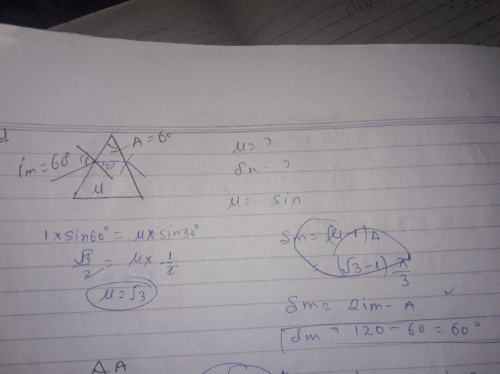 A = 60
im = 60
30°
μ
μ = ?
δm = ?
μ = sin
1 × sin60° = μ × sin30°
√3/2 = μ × 1/2
μ = √3
δm = (μ-1)A
= (√3 - 1) π/3
δm = 2im - A
δm = 120 - 60 = 60°
A A